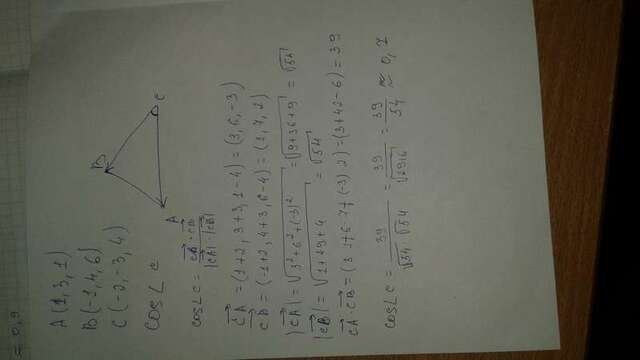 = 0,9
A(1,3,1)
B(-1,4,6)
C(-2,-3,4)
cos∠c
B
c
A
cos∠c = CA·CB / |CA|·|CB|
CA = (1+2, 3+3, 1-4) = (3, 6, -3)
CB = (-1+2, 4+3, 6-4) = (1, 7, 2)
|CA| = √3²+6²+(-3)² = √9+36+9 = √54
|CB| = √1+49+4 = √54
CA·CB = (3·1+6·7+(-3)·2) = (3+42-6) = 39
cos∠c = 39 / √54 √54 = 39 / √2916 = 39 / 54 ≈ 0,7